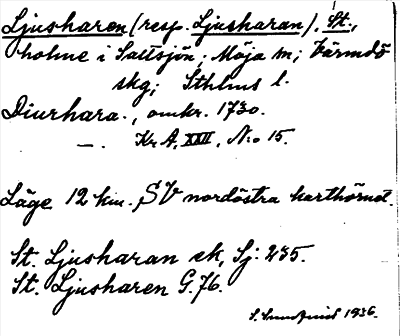 Ljusharen (resp. Ljusharan), St.,
holme i Saltsjön; Möja sn; Värmdö
skg; Sthlms l.
Diurhara., omkr. 1730.
—. Kr A, XXII, N:o 15.
Läge 12 km. SV nordöstra karthörnet.
St. Ljusharan ek, Sj. 235.
St. Ljusharen G.76.
S. Sundquist 1936.